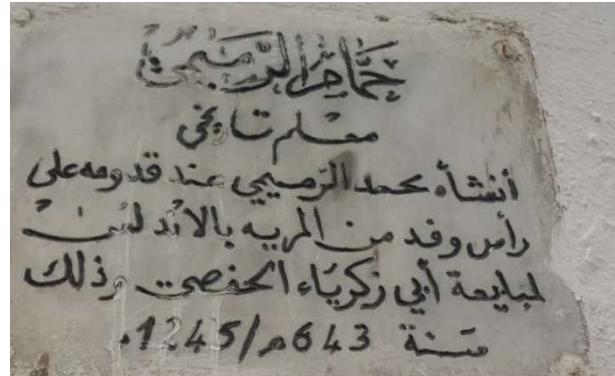 حمّام الرّميمي
معلم تاريخي
أنشأه محمد الرميمي عند قدومه على
رأس وفد من المريه بالأندلس
لمبايعة أبي زكرياء الحفصي وذلك
سنة 643هـ/1245م.